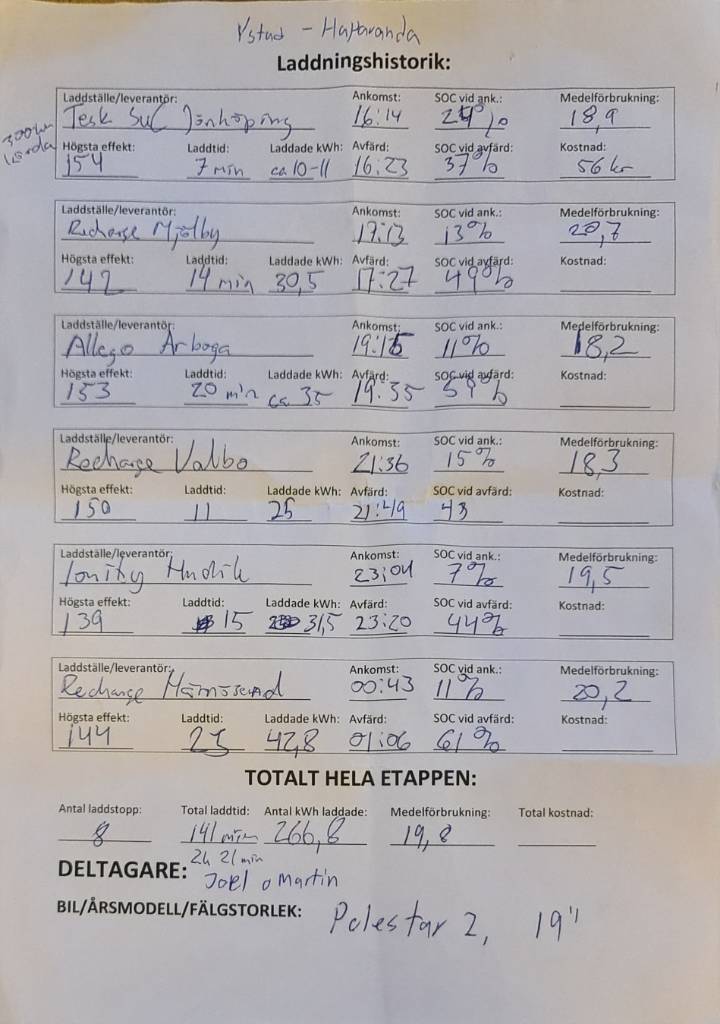 Ystad - Haparanda
Laddningshistorik:
Laddställe/leverantör: Ankomst: SOC vid ank.: Medelförbrukning:
Tesk SuC Jönköping 16:14 % 18,9
300 km
Högsta effekt: Laddtid: Laddade kWh: Avfärd: SOC vid avfärd: Kostnad:
154 7 min ca 10-11 16:23 37% 56 kr
Laddställe/leverantör: Ankomst: SOC vid ank.: Medelförbrukning:
Recharge Mjölby 17:13 13% 20,7
Högsta effekt: Laddtid: Laddade kWh: Avfärd: SOC vid avfärd: Kostnad:
142 14 min 30,5 17:27 49%
Laddställe/leverantör: Ankomst: SOC vid ank.: Medelförbrukning:
Allego Arboga 19:15 11% 18,2
Högsta effekt: Laddtid: Laddade kWh: Avfärd: SOC vid avfärd: Kostnad:
153 20 min ca 35 19:35 59%
Laddställe/leverantör: Ankomst: SOC vid ank.: Medelförbrukning:
Recharge Valbo 21:36 15% 18,3
Högsta effekt: Laddtid: Laddade kWh: Avfärd: SOC vid avfärd: Kostnad:
150 11 25 21:49 43
Laddställe/leverantör: Ankomst: SOC vid ank.: Medelförbrukning:
Ionity Hudik 23:04 7% 19,5
Högsta effekt: Laddtid: Laddade kWh: Avfärd: SOC vid avfärd: Kostnad:
139 15 31,5 23:20 44%
Laddställe/leverantör: Ankomst: SOC vid ank.: Medelförbrukning:
Recharge Härnösand 00:43 11% 20,2
Högsta effekt: Laddtid: Laddade kWh: Avfärd: SOC vid avfärd: Kostnad:
144 23 42,8 01:06 61%
TOTALT HELA ETAPPEN:
Antal laddstopp: Total laddtid: Antal kWh laddade: Medelförbrukning: Total kostnad:
8 141 min 266,8 19,8
2h 21 min
DELTAGARE: Joel o Martin
BIL/ÅRSMODELL/FÄLGSTORLEK: Polestar 2, 19"